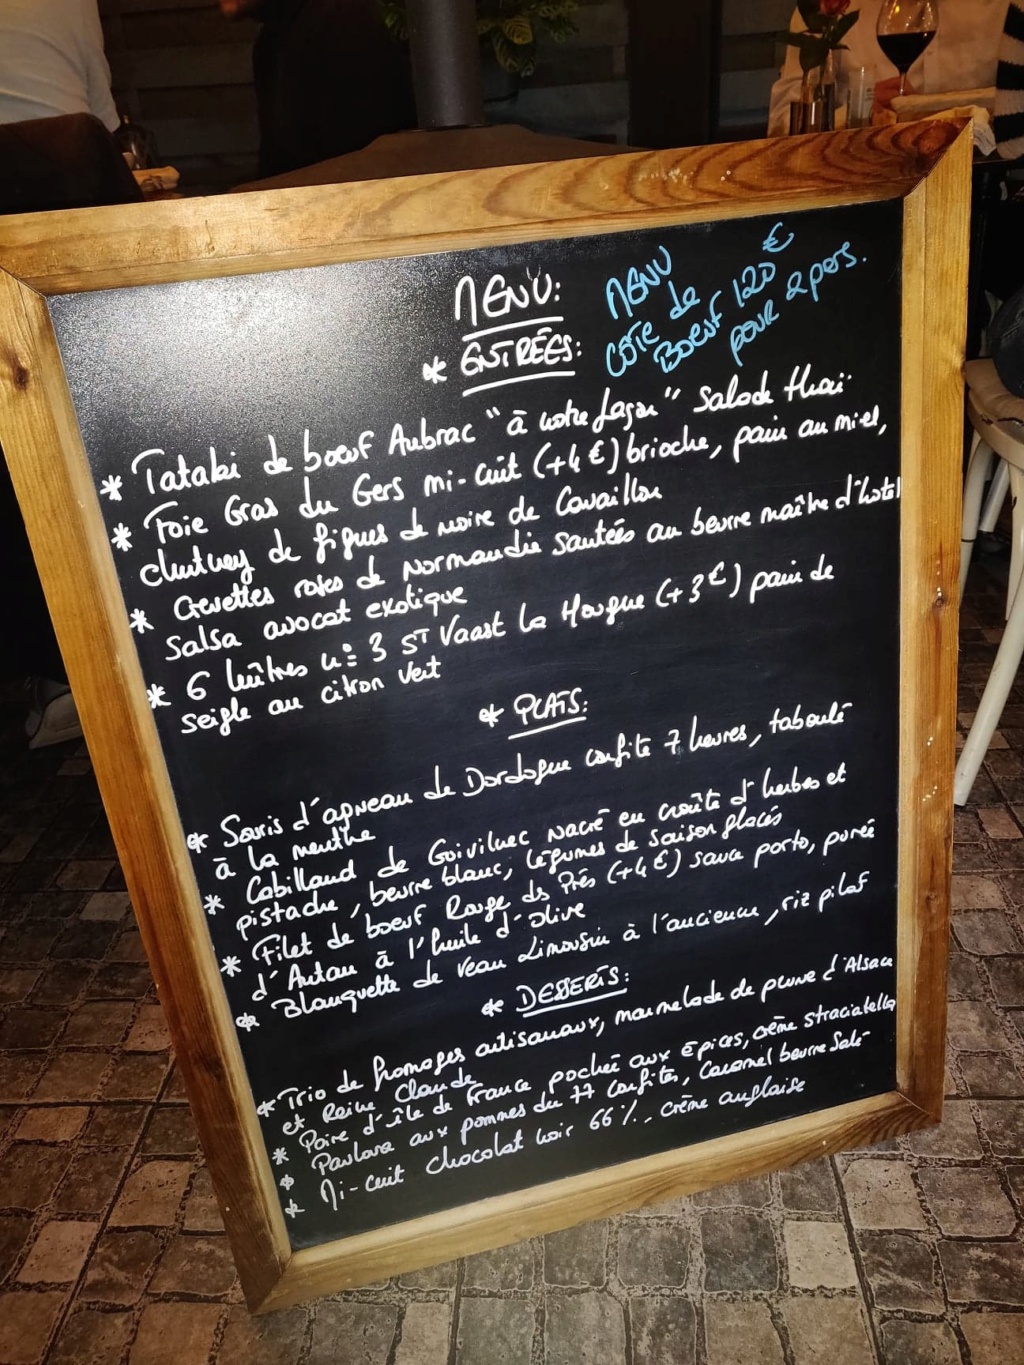 MENU:
MENU
CÔTE de
BOEUF 120 €
pour 2 pers.
* ENTRÉES:
* Tataki de boeuf Aubrac "à notre façon" salade thaï
* Foie Gras du Gers mi-cuit (+4€) brioche, pain au miel,
chutney de figues de noire de Cavaillon
* Crevettes roses de Normandie sautées au beurre maître d'hotel
salsa avocat exotique
* 6 huîtres n°3 ST Vaast la Hougue (+3€) pain de
seigle au citron vert
* PLATS:
* Souris d'agneau de Dordogne confite 7 heures, taboulé
à la menthe
* Cabillaud de Goivilnec nacré en croûte d'herbes et
pistache, beurre blanc, légumes de saison glacés
* Filet de boeuf Rouge des Près (+4€) sauce porto, purée
d'Autan à l'huile d'olive
* Blanquette de veau Limousin à l'ancienne, riz pilaf
* DESSERTS:
* Trio de fromages artisanaux, marmelade de prune d'Alsace
et Reine Claude
* Poire d'île de France pochée aux épices, crème straciatella
* Pavlova aux pommes du 77 confites, caramel beurre salé
* Mi-cuit chocolat noir 66%, crème anglaise